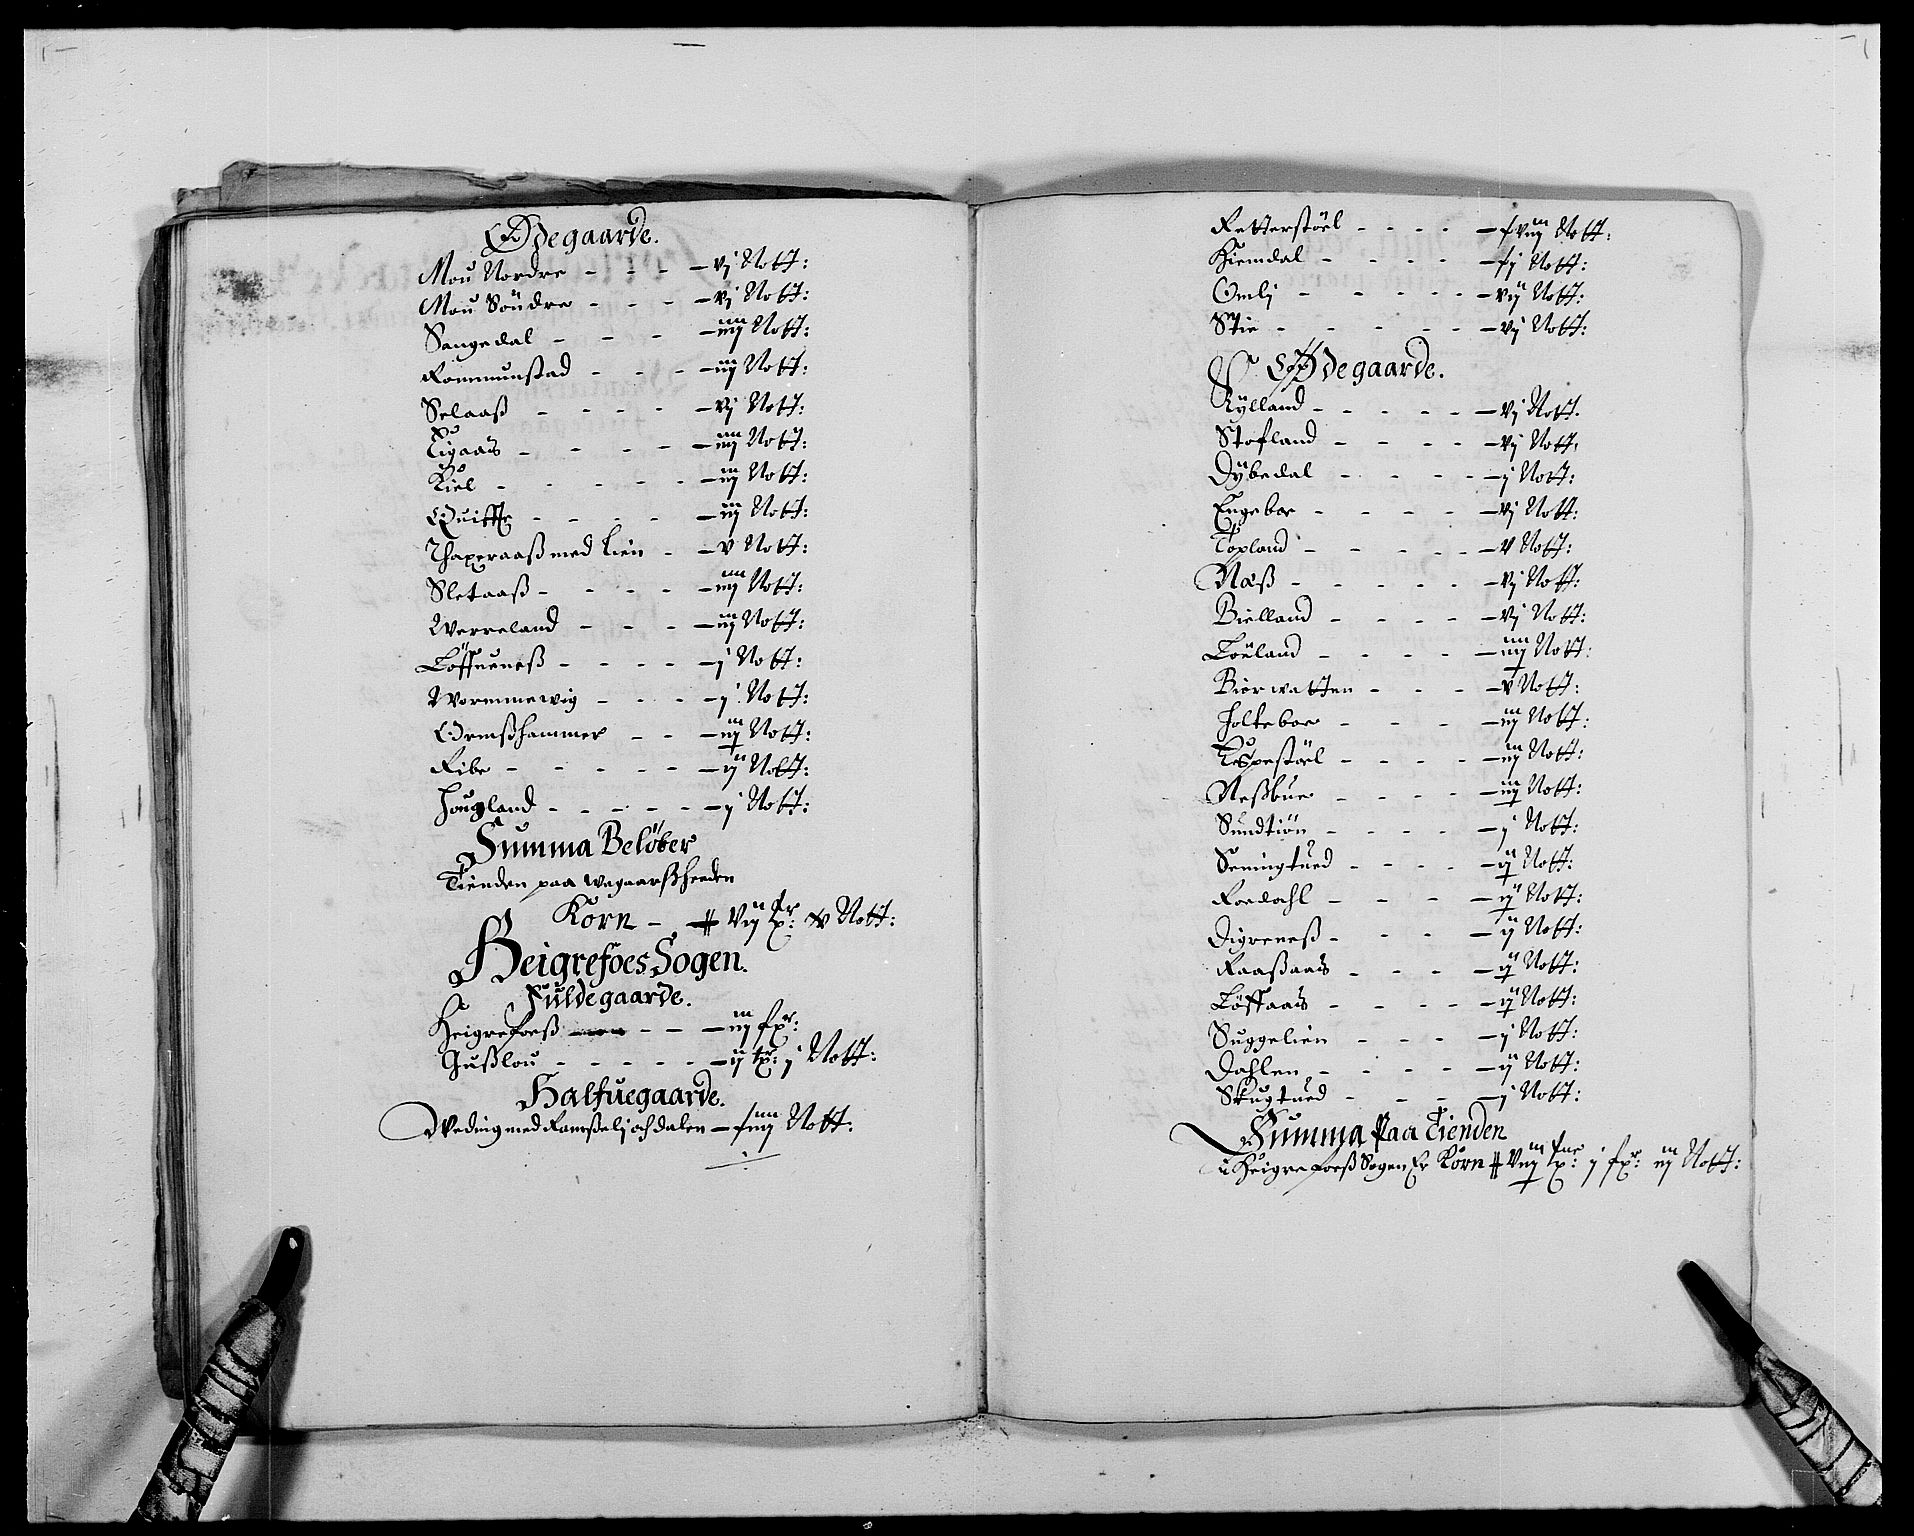 Ødegaarde.
Mou Nordre - - - - vj Nott:
Mou Søndre - - - - vj Nott:
Sangedal - - - iiij Nott:
Rommunstad - - - iij Nott:
Selaaß - - - - vj Nott:
Ligaas - - - - iiij Nott:
Kiel - - - - - iij Nott:
- - - - iij Nott:
Thaxeraaß med Lien - v Nott:
Sletaaß - - - - iiij Nott:
Werreland - - - iij Nott:
Löffueneß - - - - j Nott:
Wormmewig - - - j Nott:
Ormßhammer - - iij Nott:
Ribe - - - - - ij Nott:
Hougland - - - - - j Nott:
Summa Beløber
Tienden paa Wegaarßheeden
Korn - vij Nott:
Heigrefoes Sogen.
Fulde gaarde.
Heigrefoeß - - - iij
Gußlou - - - - - ij j Nott:
Halfuegaarde.
Weding med Ramßelj och dalen - Nott:
Retterstöel - - - - Nott:
Hiemdal - - - - Nott:
Omlj - - - - - vij Nott:
Stie - - - - - vj Nott:
Ødegaarde.
Kylland - - - - - vj Nott.
Stofland - - - - vj Nott.
Dybedal - - - - j Nott:
Engeboe - - - - vj Nott:
Topland - - - - - v Nott:
Næß - - - - - vj Nott:
Bielland - - - - vj Nott:
Löuland - - - - iiij Nott:
Biorwatten - - - v Nott:
Holteboe - - - iij Nott:
Espestöel - - - - iij Nott:
Neßbue - - - - iij Nott:
Sundtiön - - - - j Nott:
Semingtued - - - - ij Nott:
Roedahl - - - ij Nott:
Digreneß - - - ij Nott:
Raaßaas - - - ij Nott:
Löffaas - - - - ij Nott:
Suggelien - - - j Nott:
Dahlen - - - - ij Nott:
Skugtued - - - - j Nott:
Summa Paa Tienden
i Heigrefoeß Sogen Er Korn viij j iij Nott: